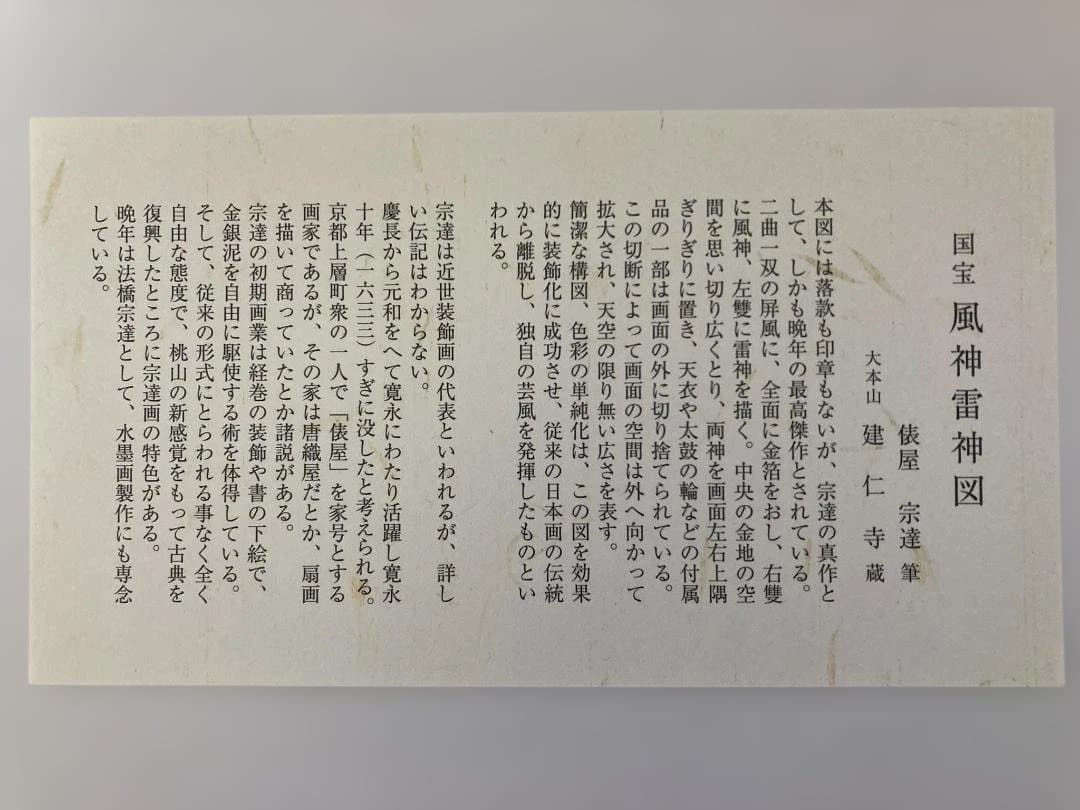 国宝 風神雷神図
俵屋 宗達 筆
大本山 建仁寺蔵
本図には落款も印章もないが、宗達の真作と
して、しかも晩年の最高傑作とされている。
二曲一双の屏風に、全面に金箔をおし、右雙
に風神、左雙に雷神を描く。中央の金地の空
間を思い切り広くとり、両神を画面左右上隅
ぎりぎりに置き、天衣や太鼓の輪などの付属
品の一部は画面の外に切り捨てられている。
この切断によって画面の空間は外へ向かって
拡大され、天空の限り無い広さを表す。
簡潔な構図、色彩の単純化は、この図を効果
的に装飾化に成功させ、従来の日本画の伝統
から離脱し、独自の芸風を発揮したものとい
われる。
宗達は近世装飾画の代表といわれるが、詳し
い伝記はわからない。
慶長から元和をへて寛永にわたり活躍し寛永
十年（一六三三）すぎに没したと考えられる。
京都上層町衆の一人で「俵屋」を家号とする
画家であるが、その家は唐織屋だとか、扇画
を描いて商っていたとか諸説がある。
宗達の初期画業は経巻の装飾や書の下絵で、
金銀泥を自由に駆使する術を体得している。
そして、従来の形式にとらわれる事なく全く
自由な態度で、桃山の新感覚をもって古典を
復興したところに宗達画の特色がある。
晩年は法橋宗達として、水墨画製作にも専念
している。